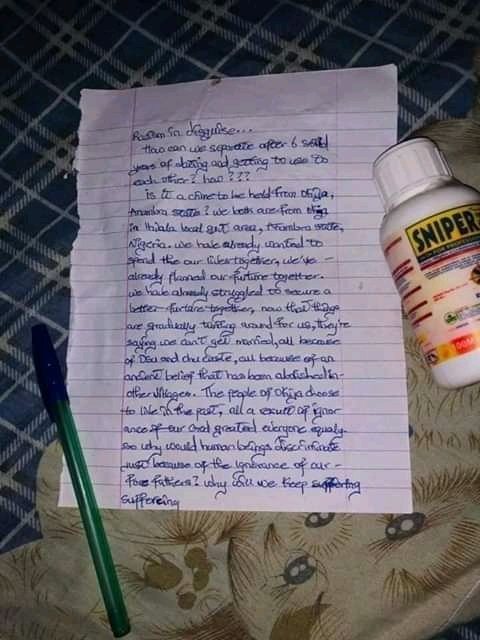 Racism in disguise...
How can we separate after 6 solid
years of dating and getting to use to
each other? how???
is it a crime to be held from Okija,
Anambra state? we both are from Okija
in Ihiala local gvt area, Anambra state,
Nigeria. we have already wanted to
spend the our lives together, we've
already planned our furture together.
we have already struggled to secure a
better furture together, now that things
are gradually turning around for us, they're
saying we can't get married, all because
of Osu and chu caste, all because of an
ancient belief that has been abolished in
other villages. The people of Okija choose
to live in the past, all a result of ignor
ance of our God greated everyone equaly
so why would human beings discriminate
just because of the ignorance of our -
fore fathers? why will we keep suffering
suffereing
SNIPER